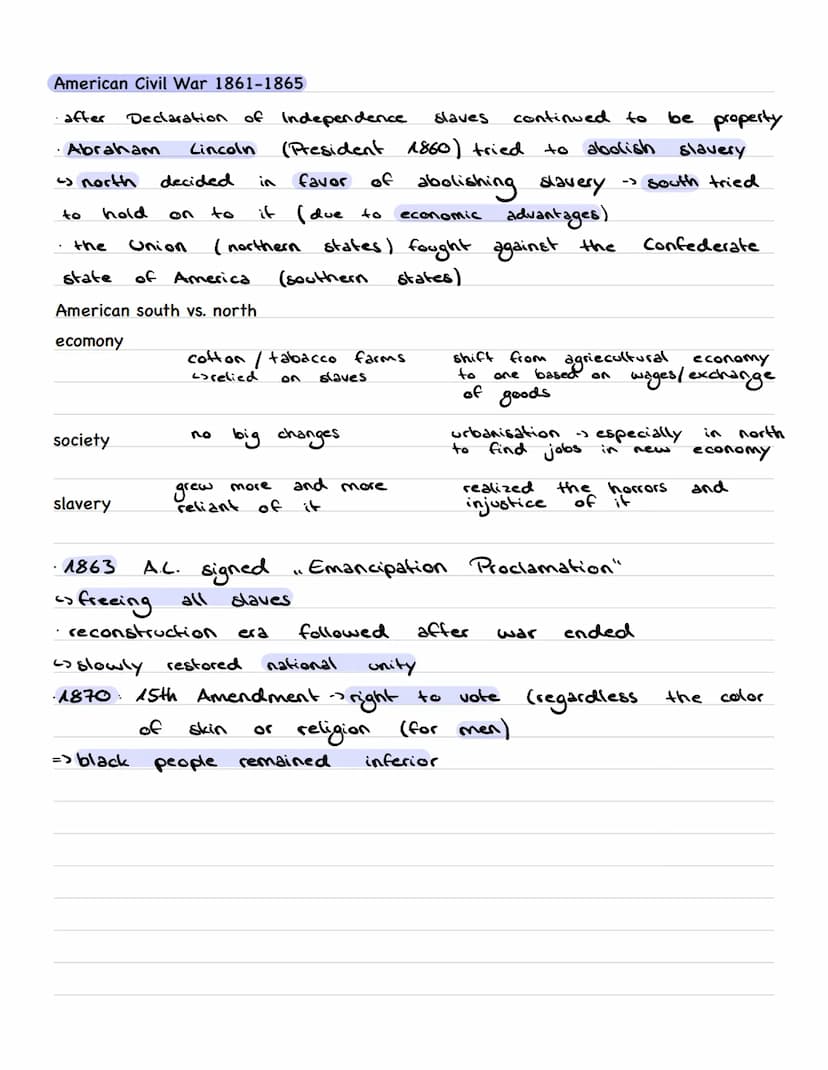 American Civil War 1861-1865
· after Declaration of Independence slaves continued to be property
· Abraham Lincoln (President 1860) tried to abolish slavery
↳ north decided in favor of abolishing slavery -> south tried
to hold on to it (due to economic advantages)
· the Union (northern states) fought against the Confederate
state of America (southern states)
American south vs. north
ecomony
cotton / tabacco farms
↳ relied on slaves
shift from agriecultural economy
to one based on wages/exchange
of goods
society
no big changes
urbanisation -> especially in north
to find jobs in new economy
slavery
grew more and more
reliant of it
realized the horrors and
injustice of it
· 1863 A.L. signed „Emancipation Proclamation"
↳ freeing all slaves
· reconstruction era followed after war ended
↳ slowly restored national unity
· 1870: 15th Amendment -> right to vote (regardless the color
of skin or religion (for men)
=> black people remained inferior